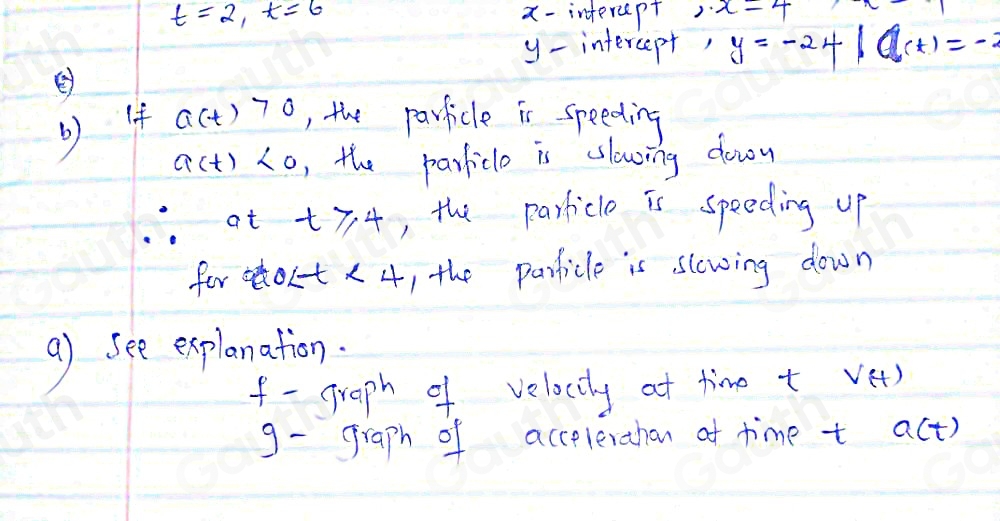 t = 2, t = 6 x - intercept , x = 4
y - intercept , y = -24 | a(t) =
c)
b) If a(t) > 0, the particle is speeding
a(t) < 0, the particle is slowing down
∴ at t ⩾ 4, the particle is speeding up
for 0 < t < 4, the particle is slowing down
a) See explanation.
f - graph of velocity at time t V(t)
g - graph of acceleration at time t a(t)